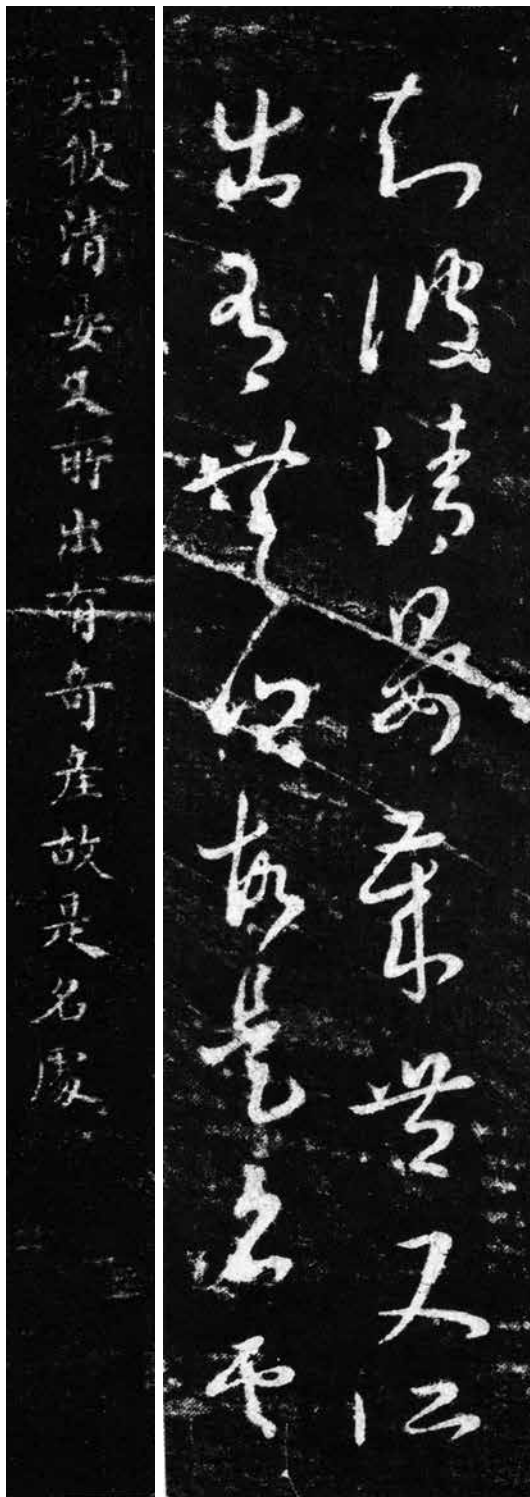 知彼清晏歲豐又所
出有無鄉故是名處
知彼清晏又所出有奇產故是名處